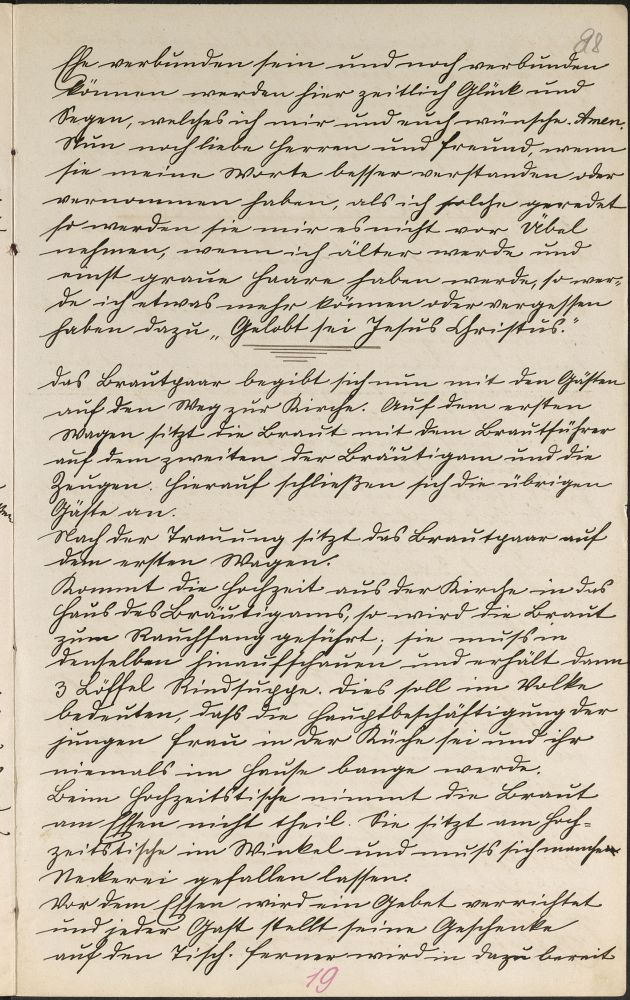 98
Ehe verbunden sein und noch verbunden
können werden hier zeitlich Glück und
Segen, welches ich mir und euch wünsche. Amen.
Nun noch liebe Herren und Freund, wenn
sie meine Worte besser verstanden oder
vernommen haben, als ich solche geredet
so werden sie mir es nicht vor Übel
nehmen, wenn ich älter werde und
einst graue Haare haben werde, so wer-
de ich etwas mehr können oder vergessen
haben dazu „Gelobt sei Jesus Christus."
Das Brautpaar begibt sich nun mit den Gästen
auf den Weg zur Kirche. Auf dem ersten
Wagen sitzt die Braut mit dem Brautführer
auf dem zweiten der Bräutigam und die
Zeugen. Hierauf schließen sich die übrigen
Gäste an.
Nach der Trauung sitzt das Brautpaar auf
dem ersten Wagen.
Kommt die Hochzeit aus der Kirche in das
Haus des Bräutigams, so wird die Braut
zum Rauchfang geführt; sie muss in
denselben hinaufschauen und erhält dann
3 Löffel Rindsuppe. Dies soll im Volke
bedeuten, dass die Hauptbeschäftigung der
jungen Frau in der Küche sei und ihr
niemals im Hause bange werde.
Beim Hochzeitstische nimmt die Braut
am Essen nicht theil. Sie sitzt am Hoch-
zeitstische im Winkel und muss sich manche
Neckerei gefallen lassen.
Vor dem Essen wird ein Gebet verrichtet
und jeder Gast stellt seine Geschenke
auf den Tisch. Ferner wird in dazu bereit
19